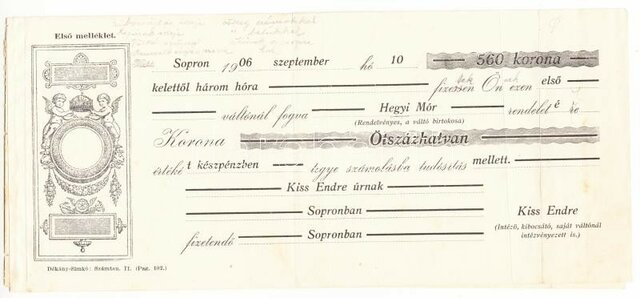 Első melléklet.
Sopron 1906 szeptember hó 10 560 korona
kelettől három hóra fizessen Ön ezen első
váltónál fogva Hegyi Mór rendeleté re
(Rendelvényes, a váltó birtokosa)
Korona Ötszázhatvan
értéke t készpénzben tegye számolásba tudósítás mellett.
Kiss Endre úrnak
Sopronban Kiss Endre
fizetendő Sopronban (Intéző, kibocsátó, saját váltónál
intézvényezett is.)
Dékány-Simkó: Számtan. II. (Pag. 102.)